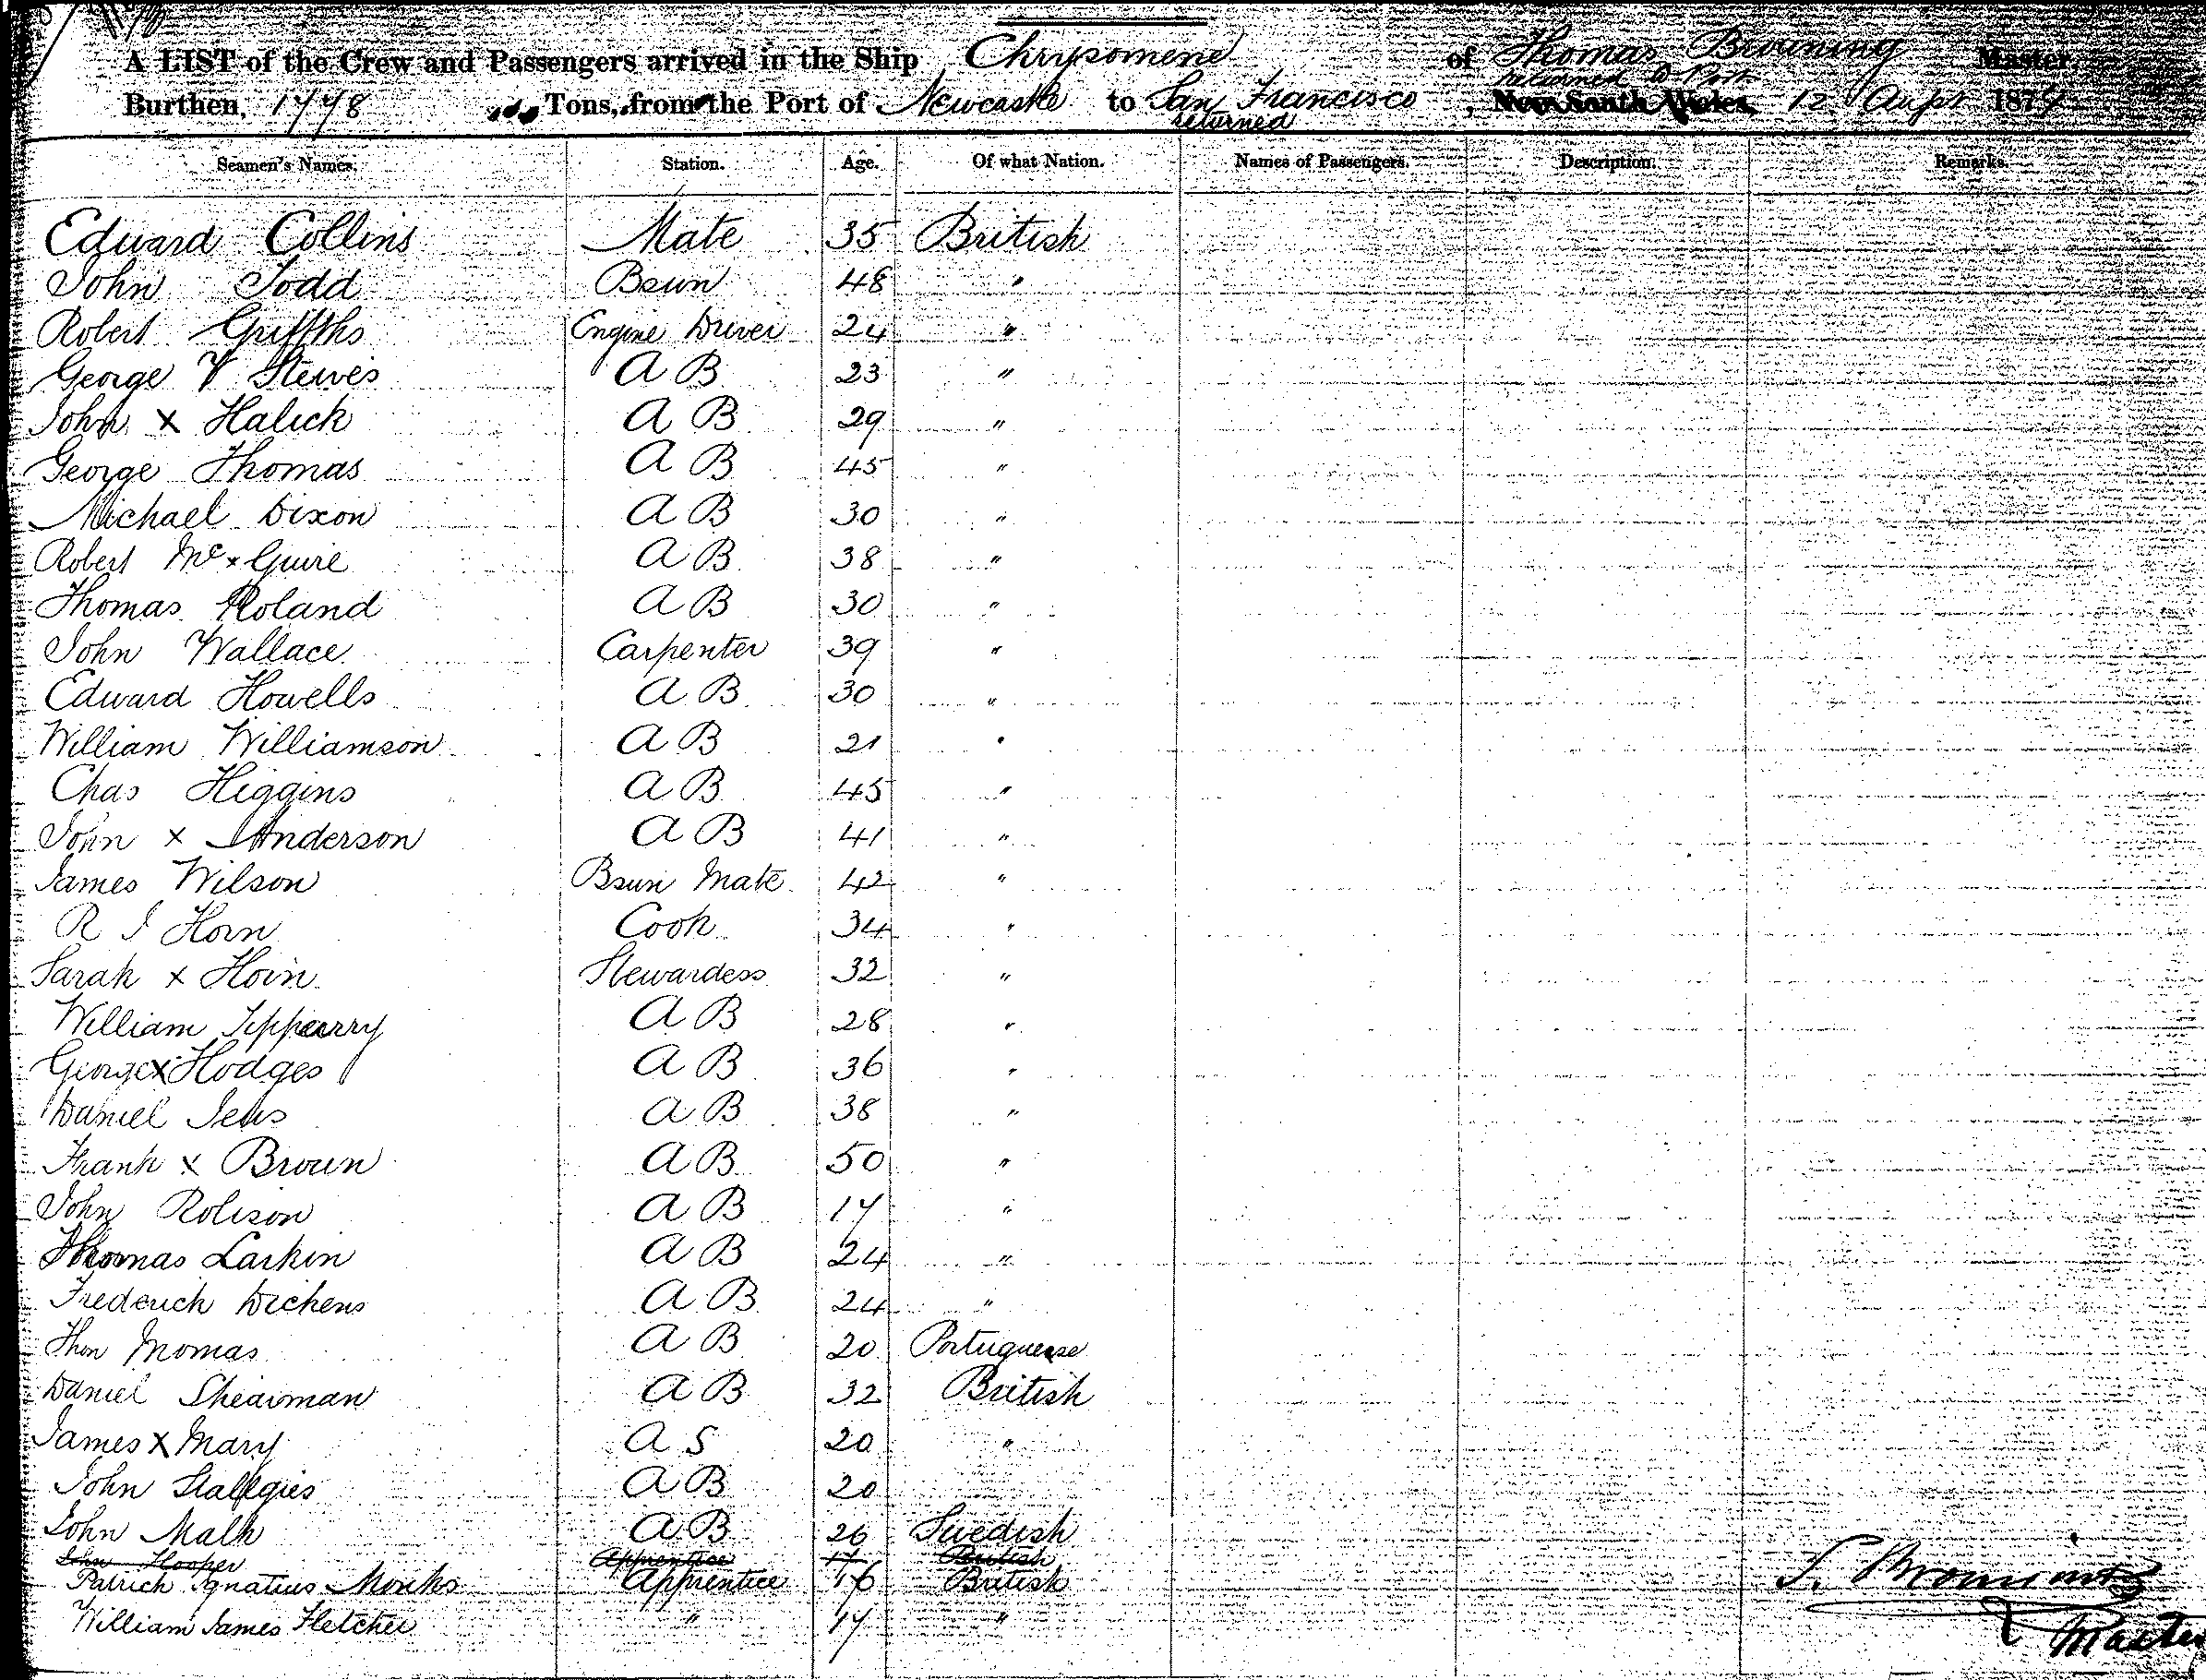 A LIST of the Crew and Passengers arrived in the Ship Chrysomene of Thomas Browning Master,
returned to Port
Burthen, 1778 Tons, from the Port of Newcastle to San Francisco, New South Wales, 12 Augst 1879
returned
Seamen's Names. Station. Age. Of what Nation. Names of Passengers. Description. Remarks.
Edward Collins Mate 35 British
John Todd Bsun 48 "
Robert Griffiths Engine Driver 24 "
George V Steves A B 23 "
John x Halick A B 29 "
George Thomas A B 45 "
Michael Dixon A B 30 "
Robert Mc x Guire A B 38 "
Thomas Roland A B 30 "
John Wallace Carpenter 39 "
Edward Howells A B 30 "
William Williamson A B 21 "
Chas Higgins A B 45 "
John x Anderson A B 41 "
James Wilson Bsun Mate 42 "
R J Horn Cook 34 "
Sarah x Horn Stewardess 32 "
William Tipperry A B 28 "
George x Hodges A B 36 "
Daniel A B 38 "
Frank x Brown A B 50 "
John Rolison A B 17 "
Thomas Larkin A B 24 "
Frederick Dickens A B 24 "
Thomas A B 20 Portuguese
Daniel Shearman A B 32 British
James x Mary A S 20 "
John A B 20
John Malk A B 26 Swedish
John Hooper Apprentice 17 British
Patrick Ignatius Monks Apprentice 16 British
William James Fletcher " 17 "
T. Browning
Master